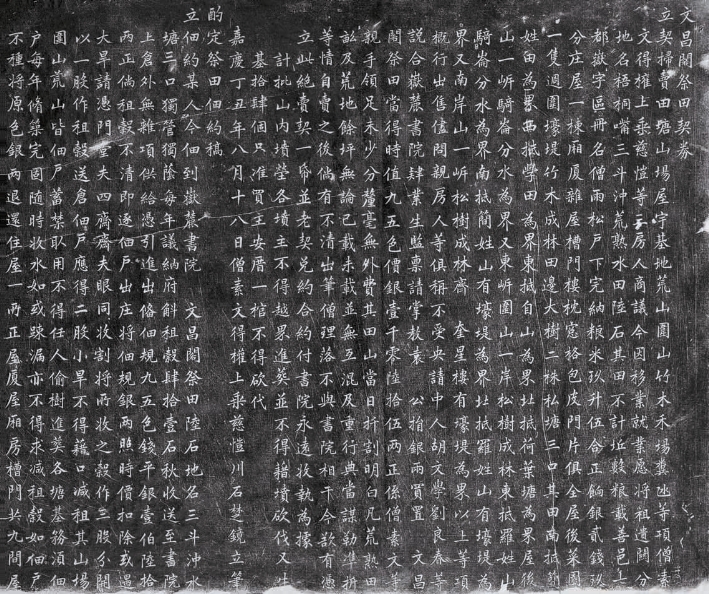 文昌閣祭田契券
立契掃賣田塘山場屋宇基地荒山園山竹木禾場糞氹等項僧素
文得權上乘慈愷等三房人商議今因移業就業愿將祖遺關分
地名梧桐嘴三斗沖荒熟水田陸石其田不計坵數糧載善邑上
都嶽字區冊名僧雨松戶下完納粮米玖升伍合正餉銀貳錢玖
分庄屋一棟廂廈雜屋槽門樓枕寬格包皮門片俱全屋後菜園
一隻週圍壕堤竹木成林田邊大樹二株私塘三口其田南抵簡
姓田為界西抵學田為界東抵自山為界北抵荷葉塘為界屋後
山一岍騎崙分水為界又東岍園山一岸松樹成林東抵羅姓山
騎崙分水為界南抵簡姓山有壕堤為界北抵羅姓山有壕堤為
界又南岸山一岍松樹成林齊 奎星樓有壕堤為界以上等項
概行出售儘問親房人等俱稱不受央請中人胡文學劉良泰等
說合嶽麓書院肄業生監稟請掌教袁 公捐銀兩買置 文昌
閣祭田當得時值九五色價銀壹千零陸拾伍兩正係僧素文等
親手領足未少分釐毫無外費其田山當日折割明白凡荒熟田
訟及荒地餘坪無論已載未載並無互混及重行典當謀勒準折
等情自賣之後倘有不清出筆僧理落不與書院相干今欲有憑
立此絕賣契一帋並老契兌約合約付書院永遠收執為據
計批山內墳塋各墳主不得越界進葬並不得藉墳砍伐又生
基拾肆個只准買主安厝一棺不得砍代
嘉慶丁丑年八月十八日僧素文得權上乘慈愷川石楚鏡立筆
酌定祭田佃約稿
立佃約某人今佃到嶽麓書院 文昌閣祭田陸石地名三斗沖水
塘三口獨管獨陰每年議納府斛租穀肆拾壹石秋收送至書院
上倉外無雜項供給憑引進出俻佃規九五色錢平銀壹伯陸拾
兩正倘租穀不清即逐佃戶出庄將佃規銀兩照時價扣除或遇
大旱請憑門堂夫四齋齋夫眼同收割將所收之穀作三股分開
以一股作租穀送倉佃戶應得二股小旱不得藉口減租其山場
園山荒山皆佃戶蓄禁取用不得任人偷樹進葬各塘基務須佃
戶每年修築完固隨時收水如或踈漏亦不得求減租穀如佃戶
不種將原色銀兩退還住屋一所正屋廈屋廂房槽門共九間屋